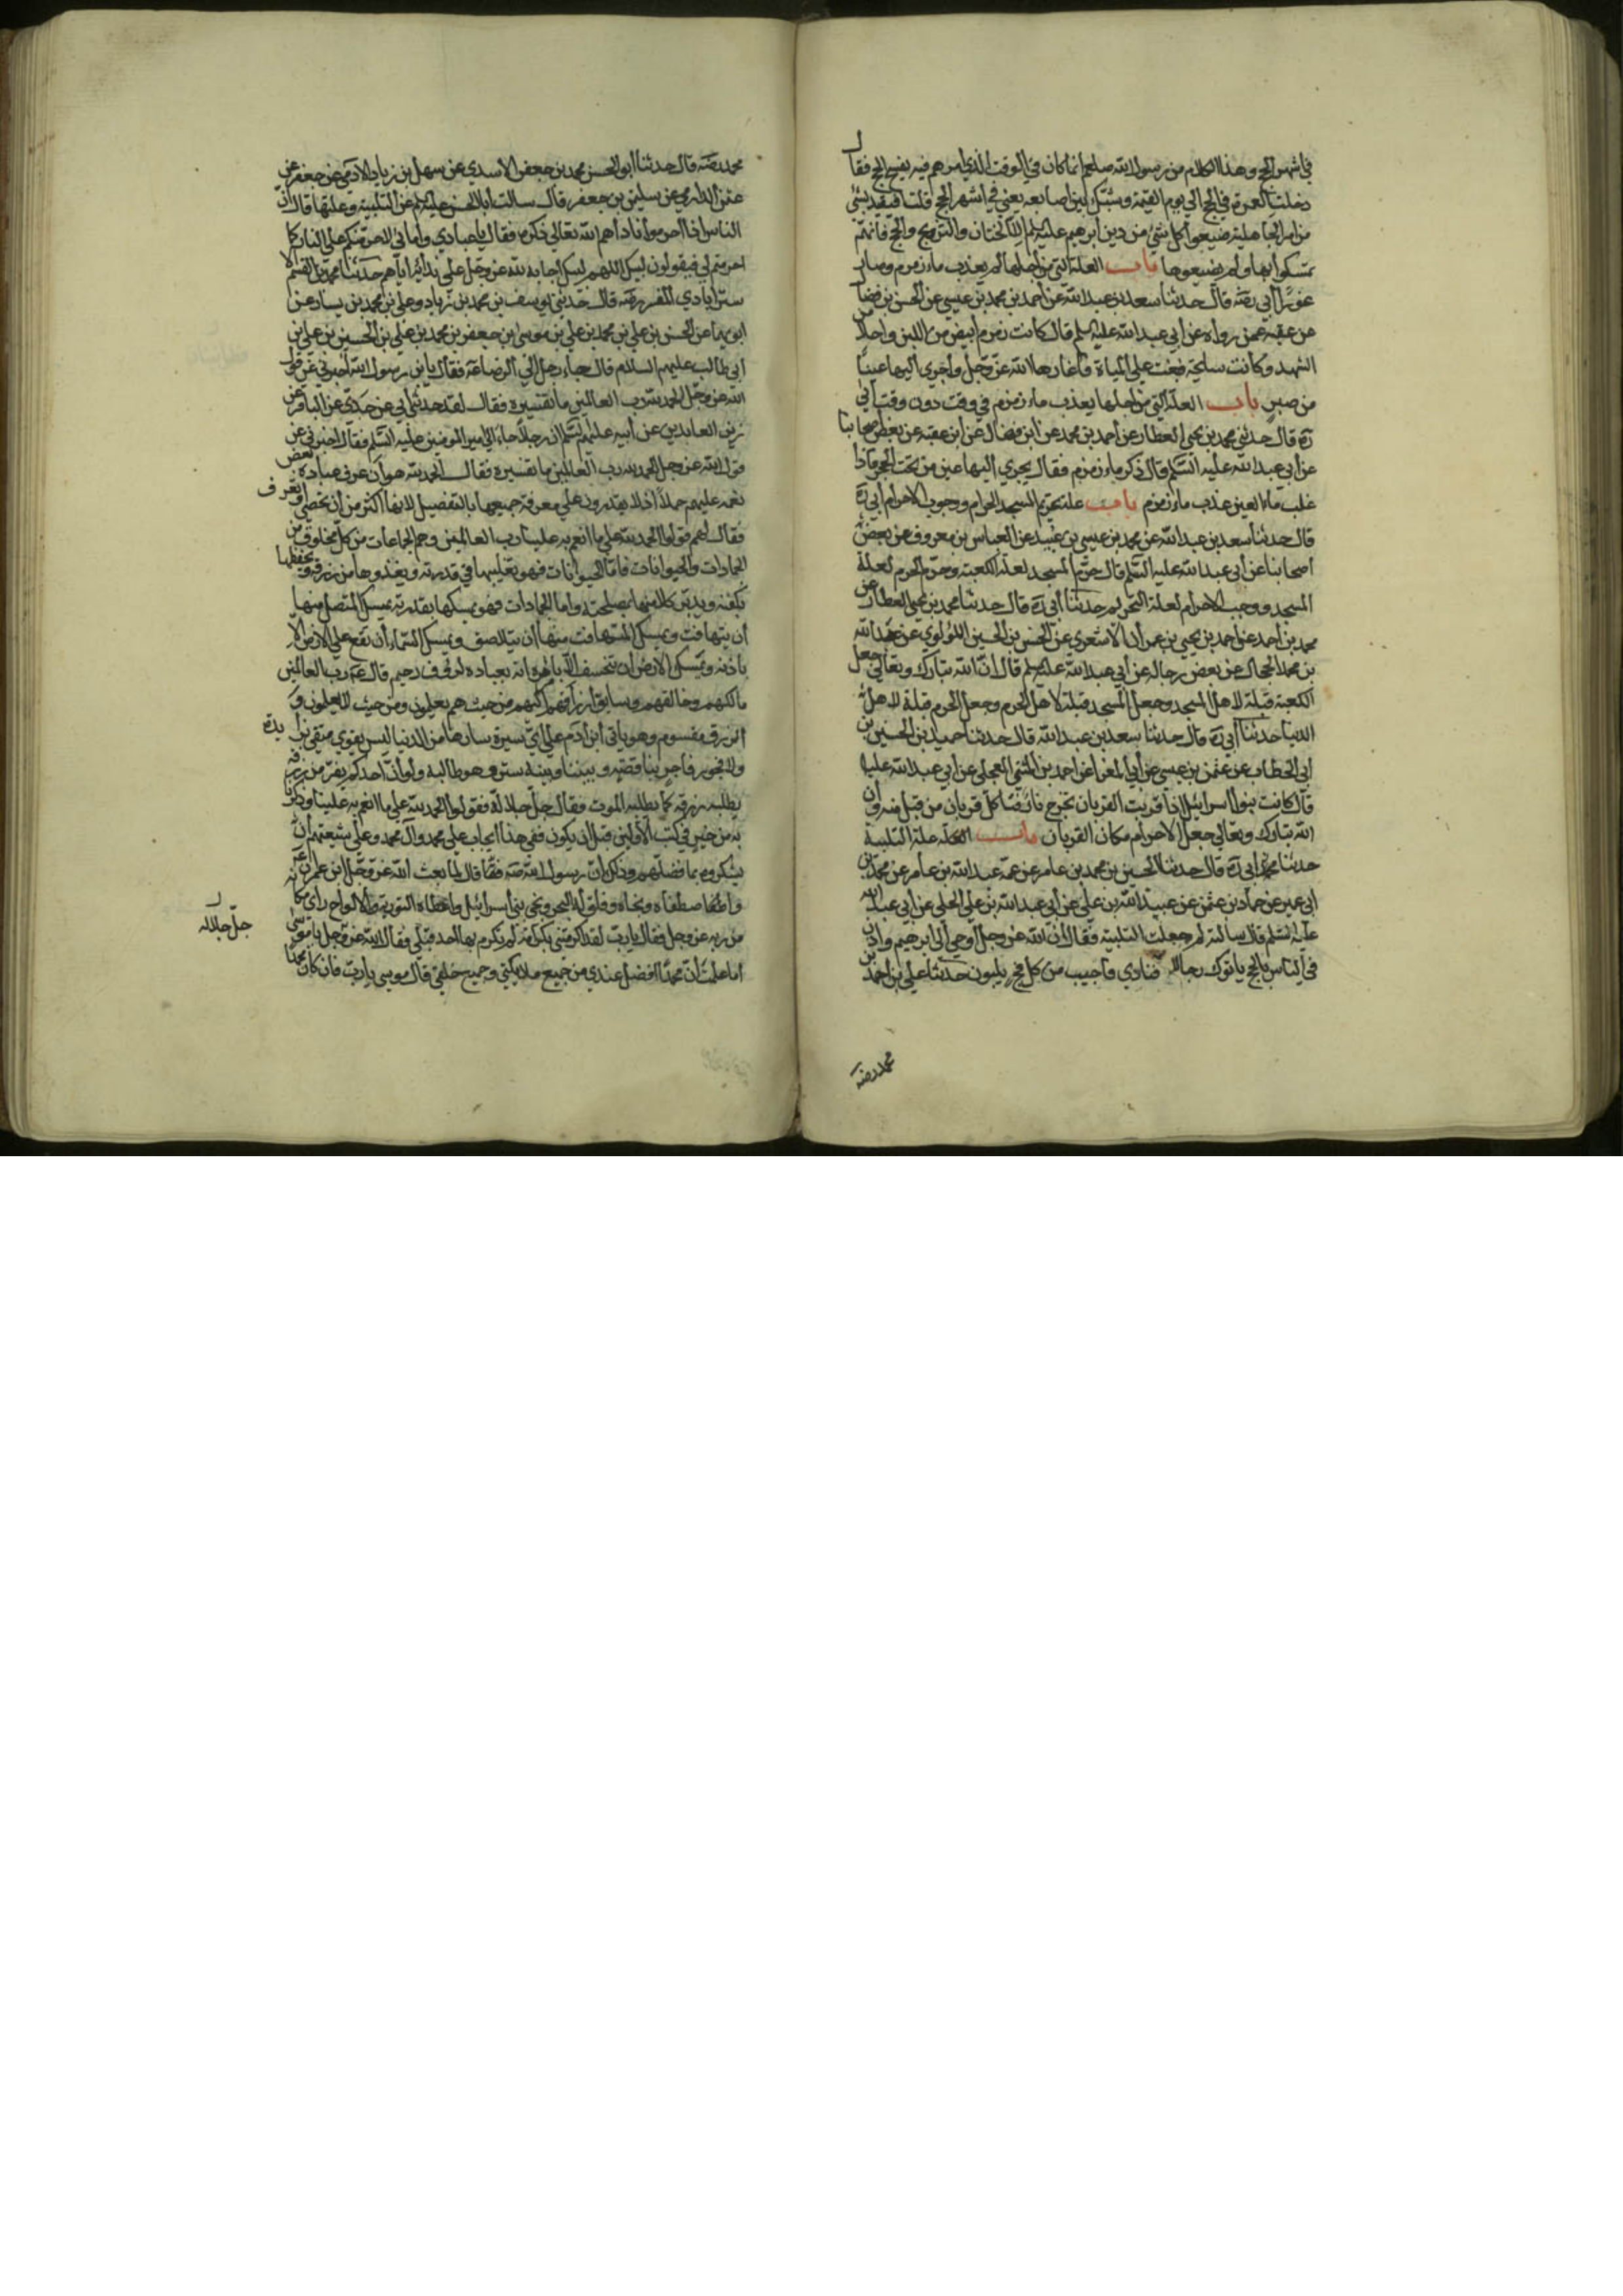 في اشهر الحج وهذا الكلام من رسول الله صلعم انما كان في الوقت الذي امرهم فيه بفسخ الحج فقال
دخلت العمرة في الحج الي يوم القيمة وشبك بين اصابعه يعني في اشهر الحج قلت افيعتد بشئ
من امر الجاهلية ضيعوا كل شئ من دين ابرهيم عليه السلم الا الختان والتزويج والحج فانهم
تمسكوا بها ولم يضيعوها باب العلة التي من اجلها لم يعذب ماء زمزم وصار
غورا ابي رضه قال حدثنا سعد بن عبد الله عن احمد بن محمد بن عيسي عن الحسن بن فضال
عن عقبه عمن رواه عن ابي عبد الله عليه السلم قال كانت زمزم ابيض من اللبن واحلا من
الشهد وكانت سايحة فبغت علي المياة فاغارها الله عز وجل واجري اليها عينا
من صبر باب العلة التي من اجلها يعذب ماء زمزم في وقت دون وقت ابي
ره قال حدثني محمد بن يحيي العطار عن احمد بن محمد عن ابن فضال عن ابن عقبه عن بعض اصحابنا
عن ابي عبد الله عليه السلم قال ذكر ماء زمزم فقال يجري اليها عين من تحت الحجر فاذا
غلب ماء العين عذب ماء زمزم باب علة تحريم المسجد الحرام ووجوب الاحرام ابي ره
قال حدثنا سعد بن عبد الله عن محمد بن عيسي بن عبيد عن العباس بن معروف عن بعض
اصحابنا عن ابي عبد الله عليه السلم قال حرم المسجد لعلة الكعبة وحرم الحرم لعلة
المسجد ووجب الاحرام لعلة الحرم حدثنا ابي ره قال حدثنا محمد بن يحيي العطار عن
محمد بن احمد عن احمد بن يحيي بن عمران الاشعري عن الحسن بن الحسين اللؤلوي عن عبد الله
بن محمد الحجال عن بعض رجاله عن ابي عبد الله عليه السلم قال ان الله تبارك وتعالي جعل
الكعبة قبلة لاهل المسجد وجعل المسجد قبلة لاهل الحرم وجعل الحرم قبلة لاهل
الدنيا حدثنا ابي ره قال حدثنا سعد بن عبد الله قال حدثنا محمد بن الحسين بن
ابي الخطاب عن عثمن بن عيسي عن ابي المغرا عن احمد بن المثني العجلي عن ابي عبد الله عليه
قال كانت بنوا اسرائيل اذا قربت القربان تخرج نار فتاكل قربان من قبل منه وان
الله تبارك وتعالي جعل الاحرام مكان القربان باب العلة علة التلبية
حدثنا ابي ره قال حدثنا الحسين بن محمد بن عامر عن عمه عبد الله بن عامر عن محمد بن
ابي عمير عن حماد بن عثمن عن عبيد الله بن علي عن ابي عبد الله بن علي الحلبي عن ابي عبد الله
عليه السلم قال سالته لم جعلت التلبية فقال ان الله عز وجل اوحي الي ابرهيم واذن
في الناس بالحج ياتوك رجالا فنادي فاجيب من كل فج يلبون حدثنا علي بن احمد بن
محمد رضه
محمد رضه قال حدثنا ابو الحسن محمد بن جعفر الاسدي عن سهل بن زياد الادمي عن جعفر بن
عثمن الدارمي عن سليمن بن جعفر قال سالت ابا الحسن عليه السلم عن التلبية وعلتها قال ان
الناس اذا احرموا ناداهم الله تعالي ذكره فقال يا عبادي وامائي لاحرمنكم علي النار كما
احرمتم لي فيقولون لبيك اللهم لبيك اجابة لله عز وجل علي ندائه اياهم حدثنا محمد بن القسم الا
سترابادي المفسر رضه قال حدثني يوسف بن محمد بن زياد وعلي بن محمد بن يسار عن
ابويهما عن الحسن بن علي بن محمد بن علي بن موسي بن جعفر بن محمد بن علي بن الحسين بن علي بن
ابي طالب عليهم السلام قال جاء رجل الي الرضا عه فقال يا بن رسول الله اخبرني عن قول
الله عز وجل الحمد لله رب العالمين ما تفسيره فقال لقد حدثني ابي عن جدي عن الباقر عن
زين العابدين عن ابيه عليهم السلم ان رجلا جاء الي امير المومنين عليه السلم فقال اخبرني عن
قول الله عز وجل الحمد لله رب العالمين ما تفسيره فقال الحمد لله هو ان عرف عباده بعض
نعمه عليهم جملا اذ لا يقدرون علي معرفة جميعها بالتفصيل لانها اكثر من ان تحصي او تعرف
فقال لهم قولوا الحمد لله علي ما انعم به علينا رب العالمين وهم الجماعات من كل مخلوق من
الجمادات والحيوانات فاما الحيوانات فهو يقلبها في قدرته ويغذوها من رزقه ويحفظها
بكنفه ويدبر كلا منها بمصلحته واما الجمادات فهو يمسكها بقدرته يمسك المتصل منها
ان يتهافت ويمسك المتهافت منها ان يتلاصق ويمسك السماء ان تقع علي الارض الا
باذنه ويمسك الارض ان تنخسف الا بامره انه بعباده لرؤف رحيم قال عه رب العالمين
مالكهم وخالقهم وسايق ارزاقهم اليهم من حيث هم يعلمون ومن حيث لا يعلمون و
الرزق مقسوم وهو ياتي ابن ادم علي اي سيرة سارها من الدنيا ليس بقوي متقي بزايده
ولا فجور فاجر بناقصه وبيننا وبينه ستر وهو طالبه ولو ان احدكم يفر من رزقه
يطلبه رزقه كما يطلبه الموت فقال جل جلاله فقولوا الحمد لله علي ما انعم به علينا وذكرنا
به من خير في كتب الاولين قبل ان يكون ففي هذا ايجاب علي محمد وال محمد وعلي شيعتهم ان
يشكروه بما فضلهم وذلك ان رسول الله صه قال لما بعث الله عز وجل موسي بن عمران عه
واصطفاه ونجاه وفلق له البحر ونجي بني اسرائيل واعطاه التورية والالواح راي مكانه
من ربه عز وجل فقال يا رب لقد اكرمتني بكرامة لم تكرم بها احد قبلي فقال الله عز وجل يا موسي
جل جلاله
اما علمت ان محمدا افضل عندي من جميع ملائكتي وجميع خلقي قال موسي يا رب فان كان محمدا